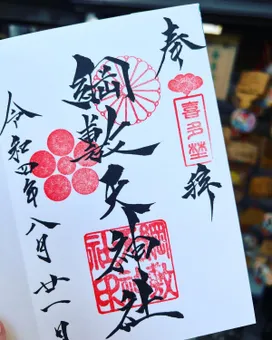 奉拝
喜多埜
綱敷天神社
令和四年八月廿一日